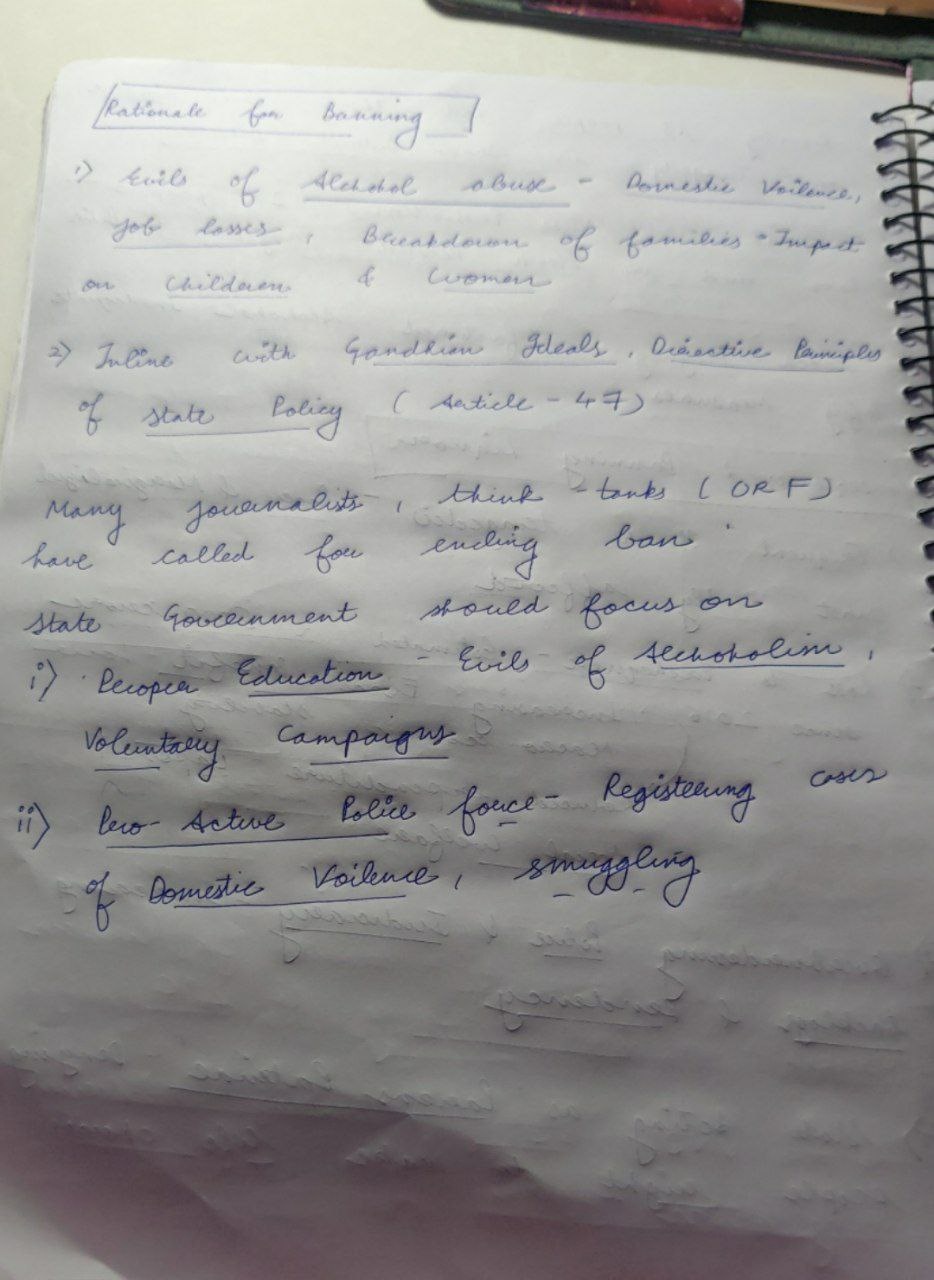 Rationale for Banning
1) Evils of Alchohol abuse - Domestic Voilence,
job losses, Breakdown of families - Impact
on Children & Women
2) Inline with Gandhian Ideals, Directive Principles
of State Policy (Article - 47)
Many journalists, think-tanks (ORF)
have called for ending ban
State Government should focus on
i) Proper Education - Evils of Alchoholism,
Voluntary Campaigns
ii) Pro-Active Police force - Registering cases
of Domestic Voilence, smuggling